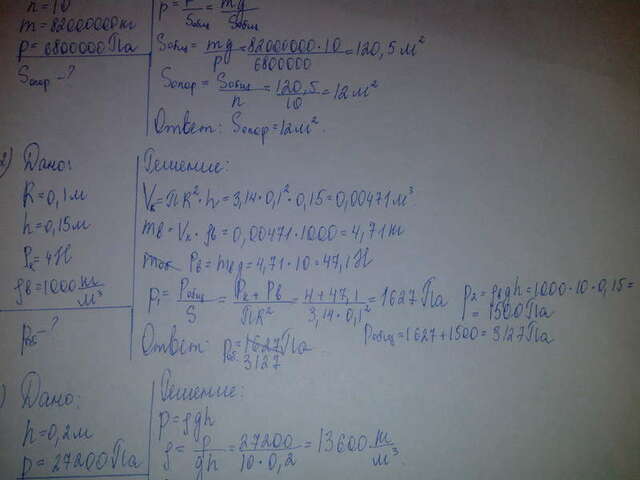 n=10
m=82000000кг
p=6800000 Па
Sопор-?
p=P/Sобщ=mg/Sобщ
Sобщ=mg/p=82000000·10/6800000=120,5 м²
Sопор=Sобщ/n=120,5/10=12 м²
Ответ: Sопор=12 м².
2) Дано:
R=0,1 м
h=0,15 м
Pк=4 Н
ρв=1000 кг/м³
pоб-?
Решение:
Vк=ПR²·h=3,14·0,1²·0,15=0,00471 м³
mв=Vк·ρв=0,00471·1000=4,71 кг
Pв=mвg=4,71·10=47,1 Н
p₁=Pобщ/S=Pк+Pв/ПR²=4+47,1/3,14·0,1²=1627 Па
p₂=ρвgh=1000·10·0,15=
=1500 Па
pобщ=1627+1500=3127 Па
Ответ: pоб.=1627 Па
3127
) Дано:
h=0,2 м
p=27200 Па
Решение:
p=ρgh
ρ=p/gh=27200/10·0,2=13600 кг/м³.